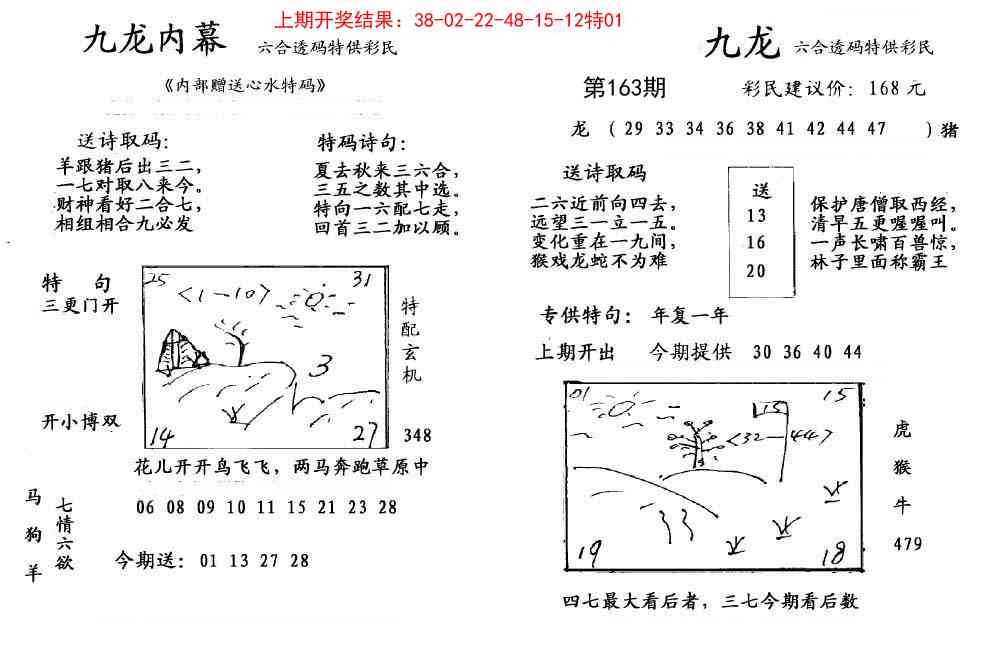 上期开奖结果：38-02-22-48-15-12特01
九龙内幕 六合透码特供彩民
《内部赠送心水特码》
送诗取码：
羊跟猪后出三二，
一七对取八来今。
财神看好二合七，
相组相合九必发
特码诗句：
夏去秋来三六合，
三五之数其中选。
特向一六配七走，
回首三二加以顾。
特 句
三更门开
开小博双
25 31
<1-10>
3
14 27
特配玄机
348
花儿开开鸟飞飞，两马奔跑草原中
马狗羊
七情六欲
06 08 09 10 11 15 21 23 28
今期送：01 13 27 28
九龙 六合透码特供彩民
第163期 彩民建议价：168元
龙 (29 33 34 36 38 41 42 44 47 )猪
送诗取码
二六近前向四去，
远望三一立一五。
变化重在一九间，
猴戏龙蛇不为难
送
13
16
20
保护唐僧取西经，
清早五更喔喔叫。
一声长啸百兽惊，
林子里面称霸王
专供特句： 年复一年
上期开出 今期提供 30 36 40 44
01 15
15
<32-44>
19 18
虎
猴
牛
479
四七最大看后者，三七今期看后数